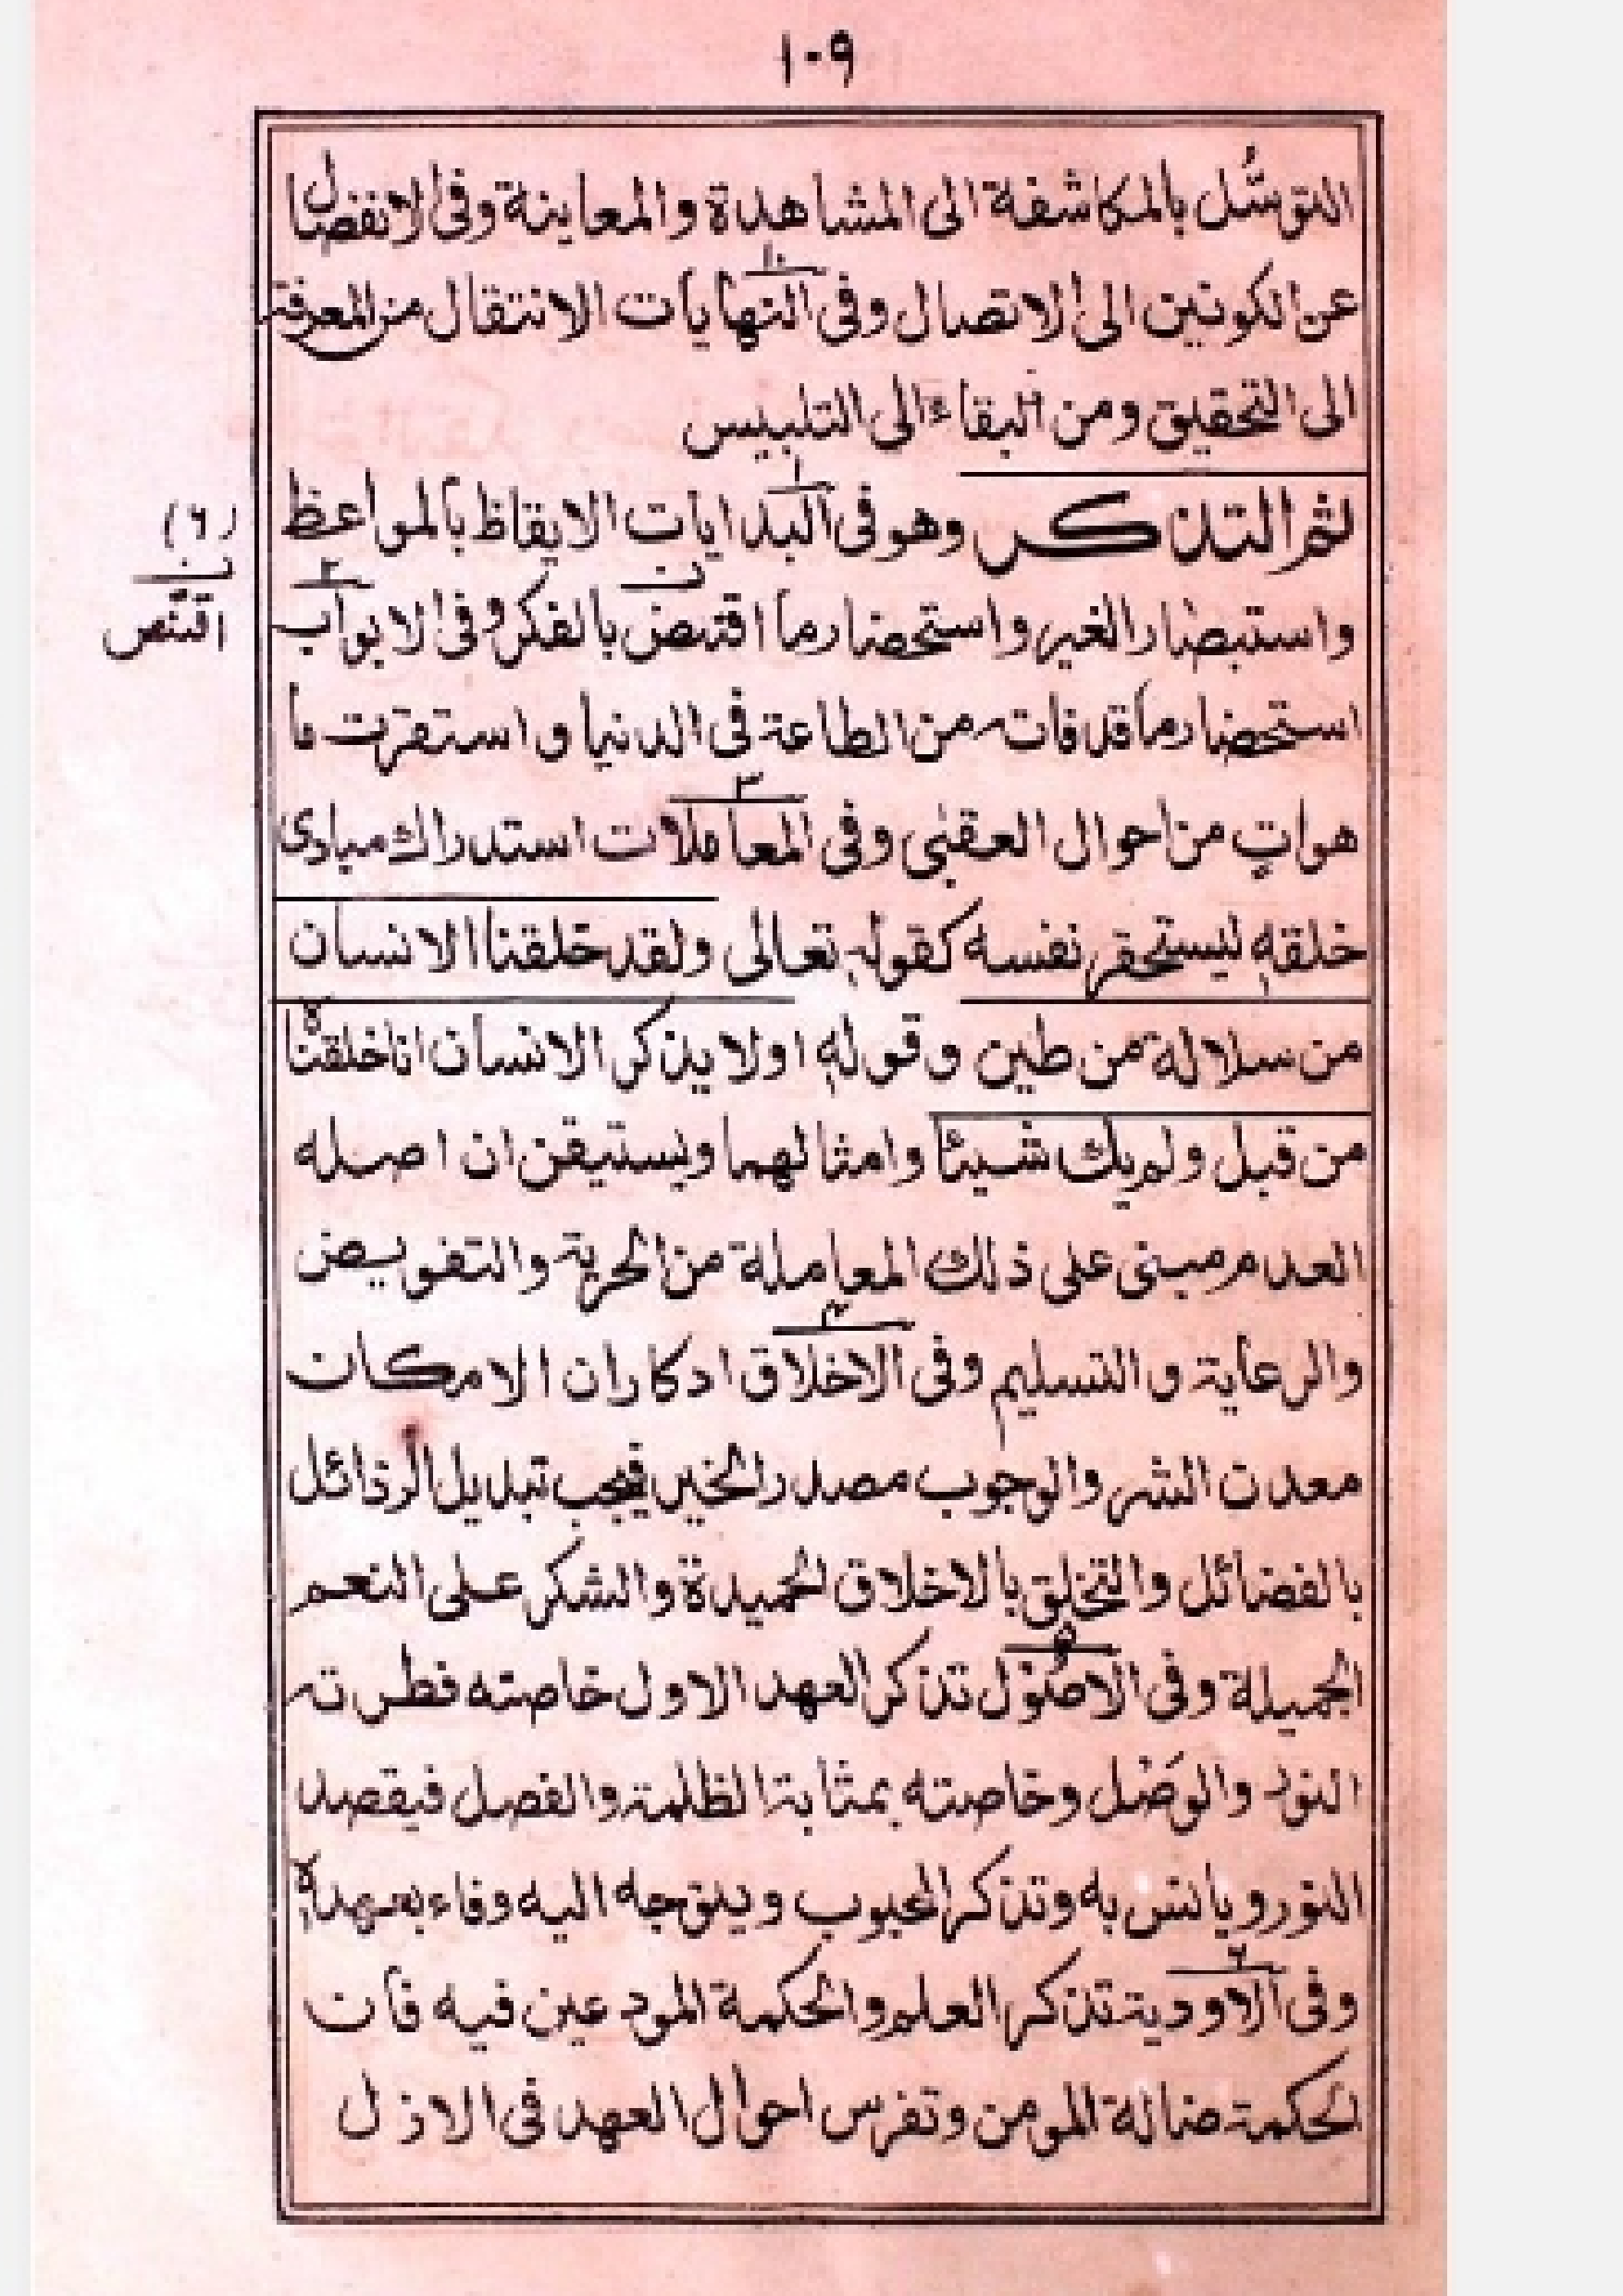 ١٠٩
التوسُّل بالمكاشفة الى المشاهدة والمعاينة وفى الانفصال
عن الكونين الى الاتصال وفى النهايات الانتقال من المعرفة
١٠
الى التحقيق ومن البقاء الى التلبيس
ثم التذكر وهو فى البدايات الايقاظ بالمواعظ
١
(٦)
واستبصار الغير واستحضار ما اقتنض بالفكر وفى الابواب
ن
٢
ن
اقتنص
استحضار ما قد فاته من الطاعة فى الدنيا و استقرت ما
هو اتٍ من احوال العقبٰى وفى المعاملات استدراك مبادى
٣
خلقهٖ ليستحقر نفسه كقولهٖ تعالى ولقد خلقنا الانسان
من سلالة من طين وقولهٖ اولا يذكر الانسان انا خلقناه
من قبل ولم يك شيئًا وامثالهما ويستيقن ان اصله
العدم مبنى على ذلك المعاملة من الحرية والتفويض
والرعاية والتسليم وفى الاخلاق ادكار ان الامكان
٤
معدن الشر والوجوب مصدر الخير فيجب تبديل الرذائل
بالفضائل والتخلق بالاخلاق الحميدة والشكر على النعم
الجميلة وفى الاصُوْل تذكر العهد الاول خاصته فطرته
٥
النور والوَصْل وخاصته بمثابة الظلمة والفصل فيقصد
النور ويانس به وتذكر المحبوب ويتوجه اليه وفاء بعهدهٖ
وفى الاودية تذكر العلم والحكمة المودعين فيه فان
٦
الحكمة ضالة المومن وتفرس احوال العهد فى الازل